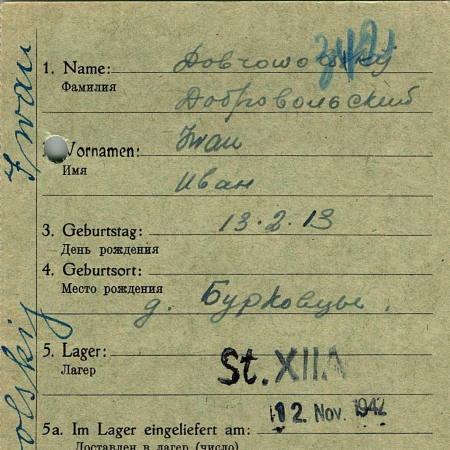 342
1. Name: Dobrowolskij
Фамилия Добровольский
2. Vornamen: Iwan
Имя Иван
3. Geburtstag: 13.2.13
День рождения
4. Geburtsort:
Место рождения
д. Бурковцы.
5. Lager: St. XIIA
Лагер
12. Nov. 1942
5a. Im Lager eingeliefert am:
Доставлен в лагер (число)
Iwan
olskij